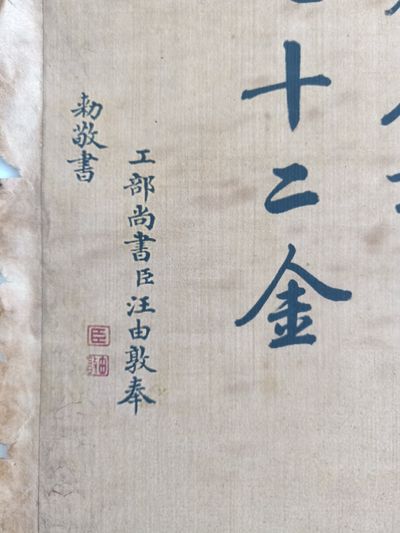 十二金
工部尚書臣汪由敦奉
勅敬書
臣